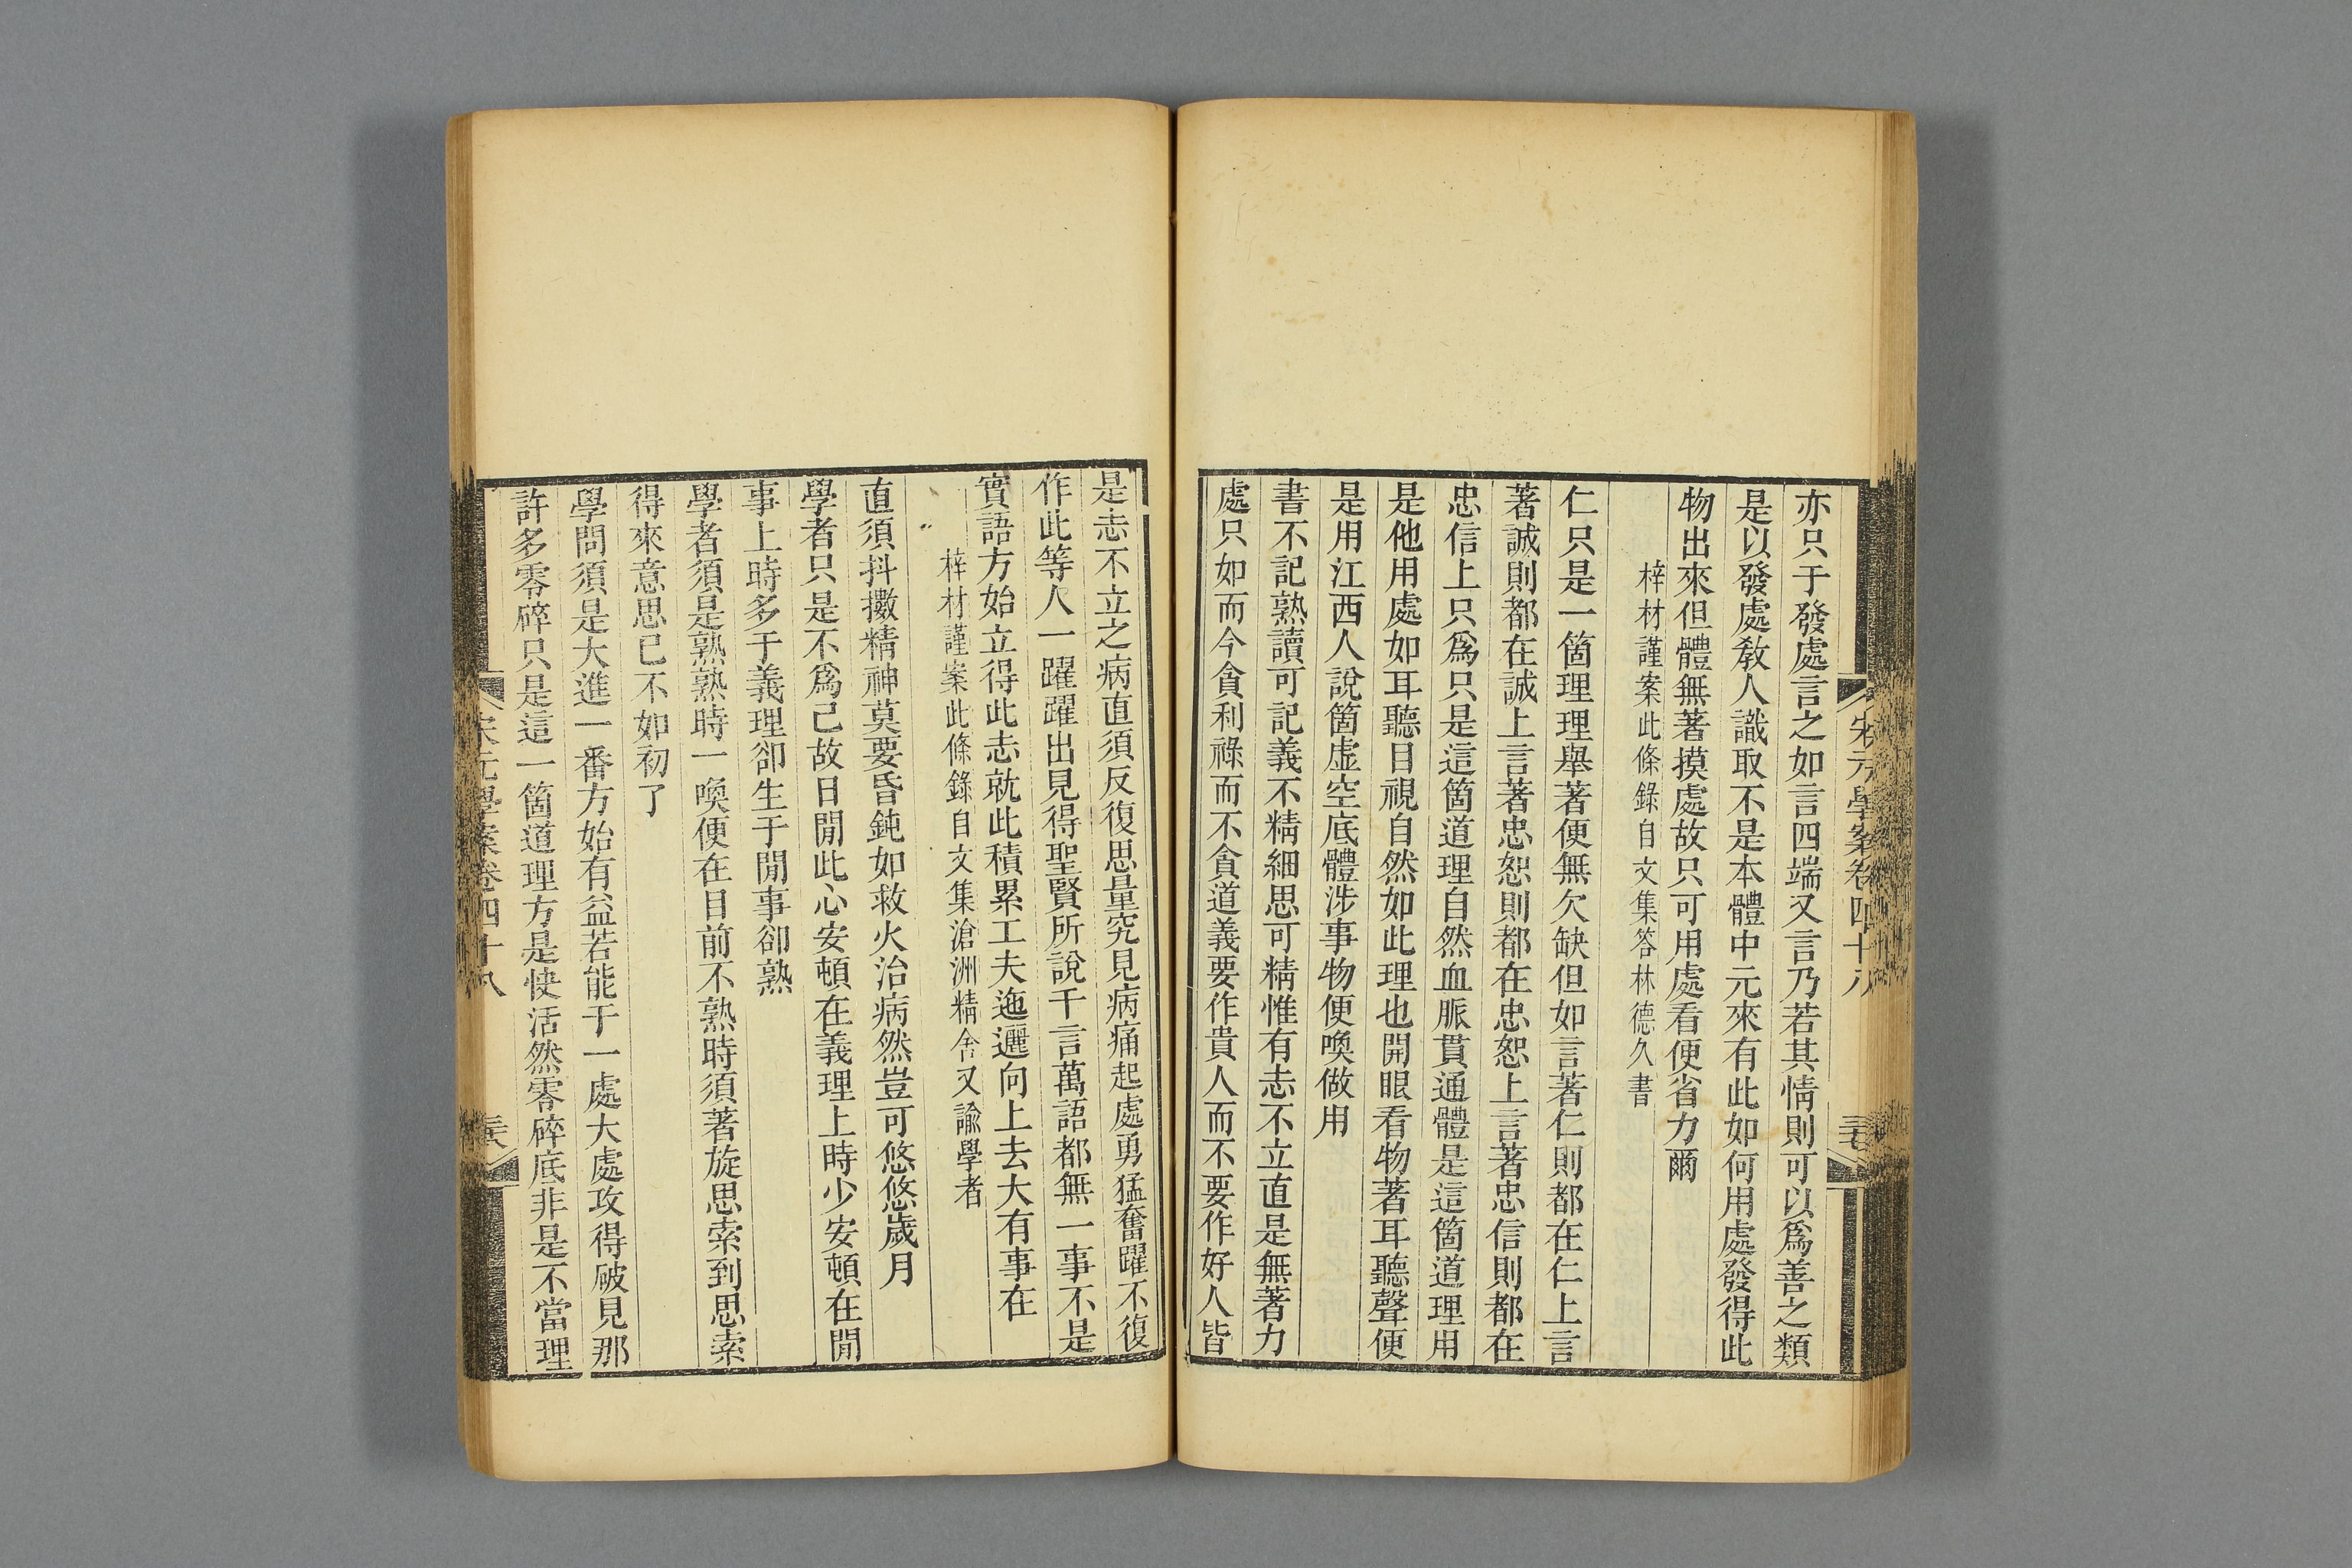 宋元學案卷四十八
亦只于發處言之如言四端又言乃若其情則可以爲善之類
是以發處敎人識取不是本體中元來有此如何用處發得此
物出來但體無著摸處故只可用處看便省力爾
梓材謹案此條錄自文集答林德久書
仁只是一箇理理舉著便無欠缺但如言著仁則都在仁上言
著誠則都在誠上言著忠恕則都在忠恕上言著忠信則都在
忠信上只爲只是這箇道理自然血脈貫通體是這箇道理用
是他用處如耳聽目視自然如此理也開眼看物著耳聽聲便
是用江西人說箇虛空底體涉事物便喚做用
書不記熟讀可記義不精細思可精惟有志不立直是無著力
處只如而今貪利祿而不貪道義要作貴人而不要作好人皆
是志不立之病直須反復思量究見病痛起處勇猛奮躍不復
作此等人一躍躍出見得聖賢所說千言萬語都無一事不是
實語方始立得此志就此積累工夫迤邐向上去大有事在
梓材謹案此條錄自文集滄洲精舍又諭學者
直須抖擻精神莫要昏鈍如救火治病然豈可悠悠歲月
學者只是不爲己故日閒此心安頓在義理上時少安頓在閒
事上時多于義理卻生于閒事卻熟
學者須是熟熟時一喚便在目前不熟時須著旋思索到思索
得來意思已不如初了
學問須是大進一番方始有益若能于一處大處攻得破見那
許多零碎只是這一箇道理方是快活然零碎底非是不當理
宋元學案卷四十八